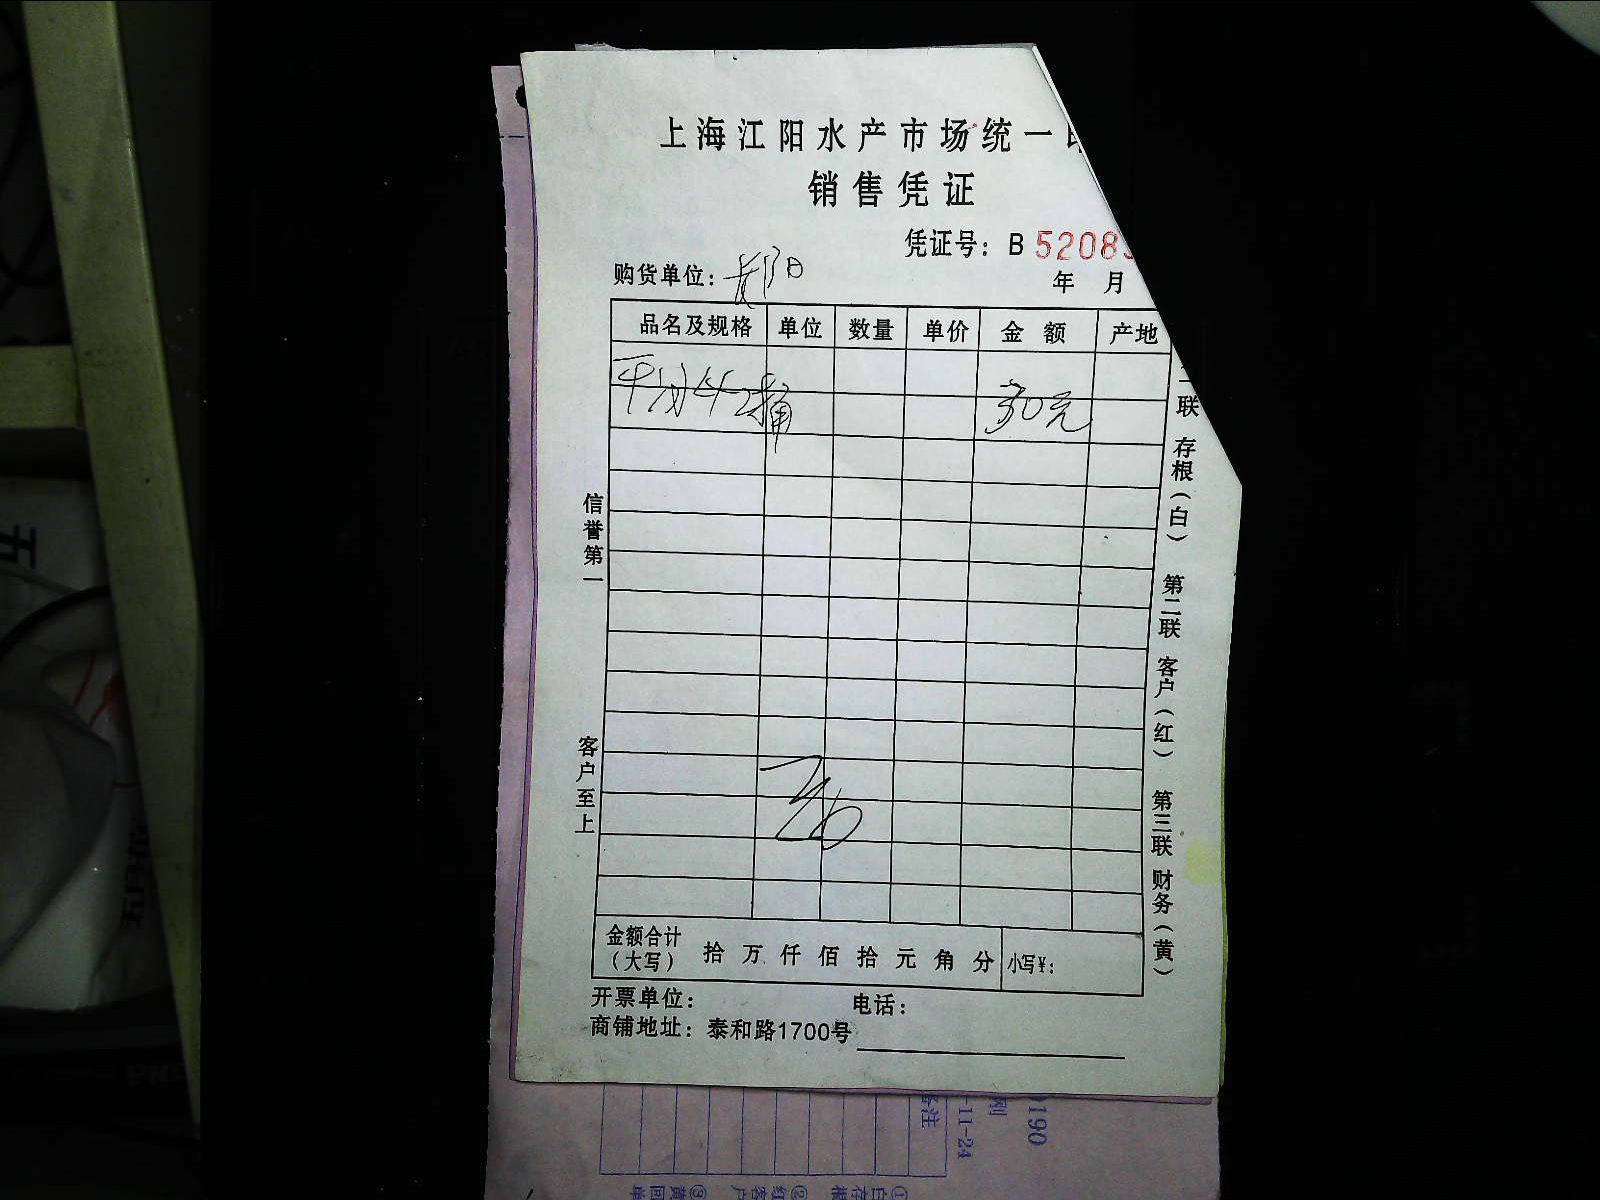 上海江阳水产市场统一
销售凭证
凭证号：B 5208
购货单位： 年 月
品名及规格 单位 数量 单价 金额 产地
30元
信誉第一
客户至上
联 存根（白） 第二联 客户（红） 第三联 财务（黄）
金额合计（大写） 拾 万 仟 佰 拾 元 角 分 小写¥：
开票单位： 电话：
商铺地址：泰和路1700号
备注
-11-24
刚
0190